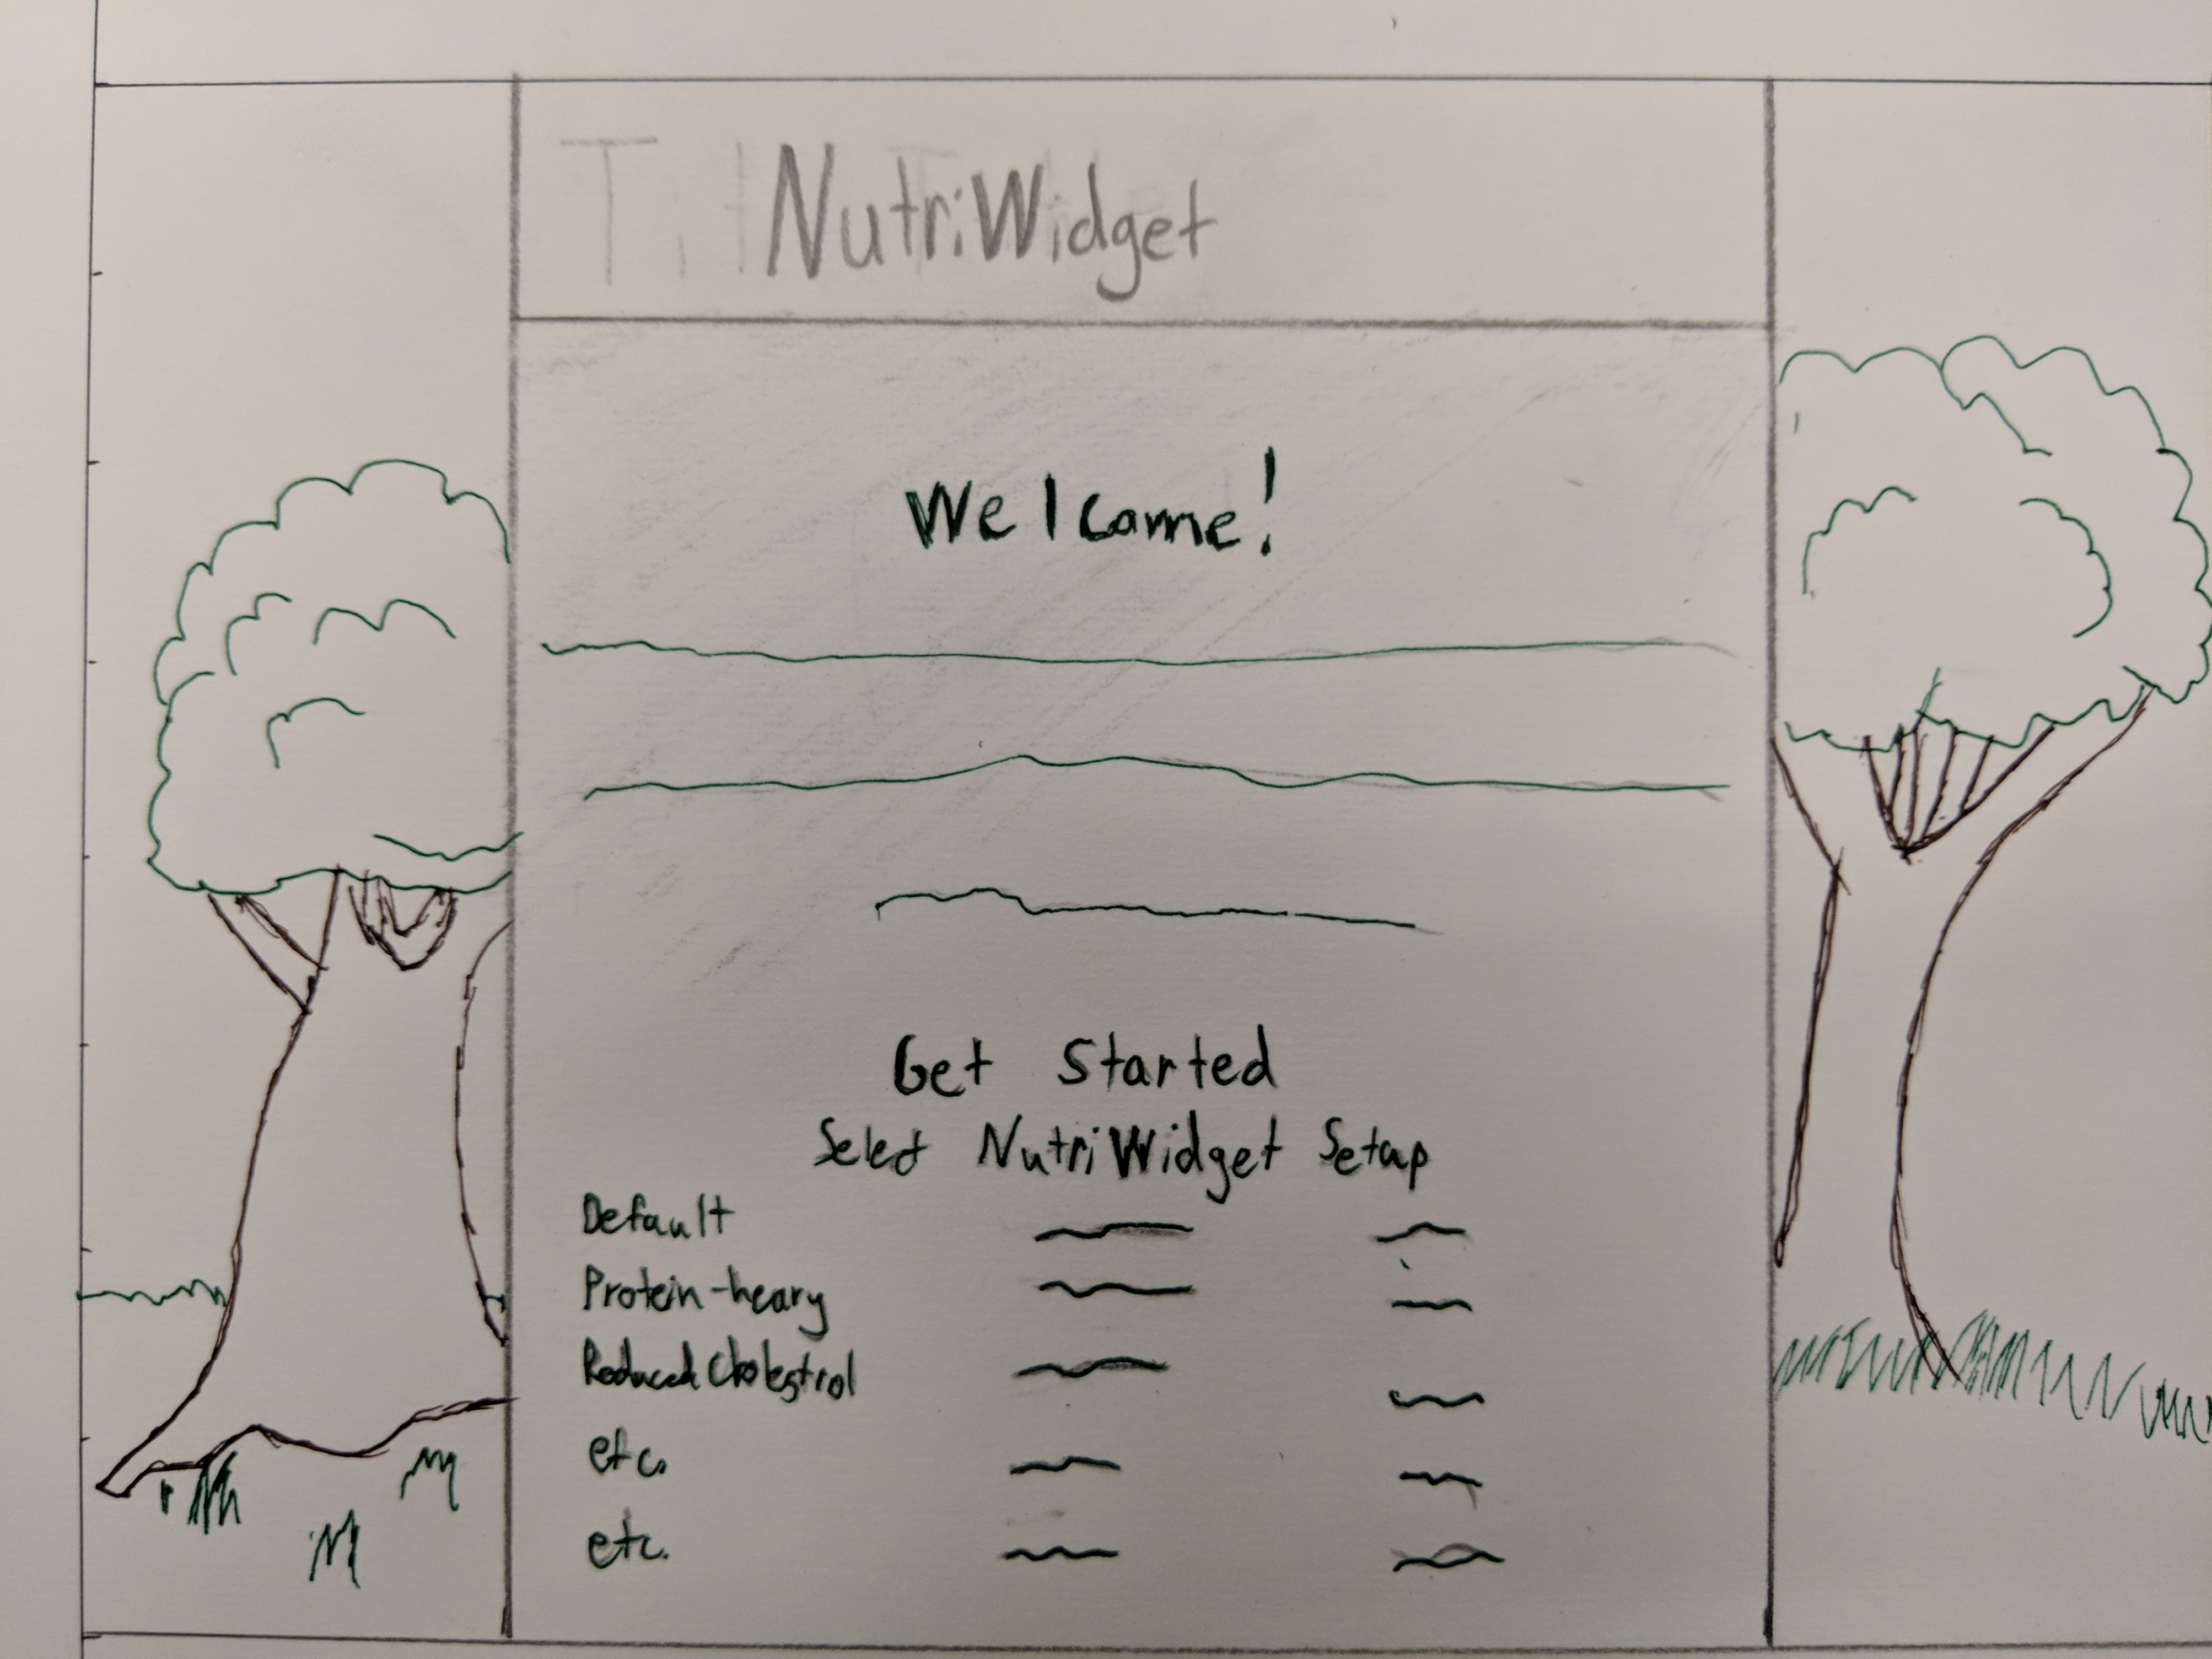 NutriWidget
Welcome!
Get Started
Select NutriWidget Setup
Default
Protein-heavy
Reduced Cholestrol
etc.
etc.